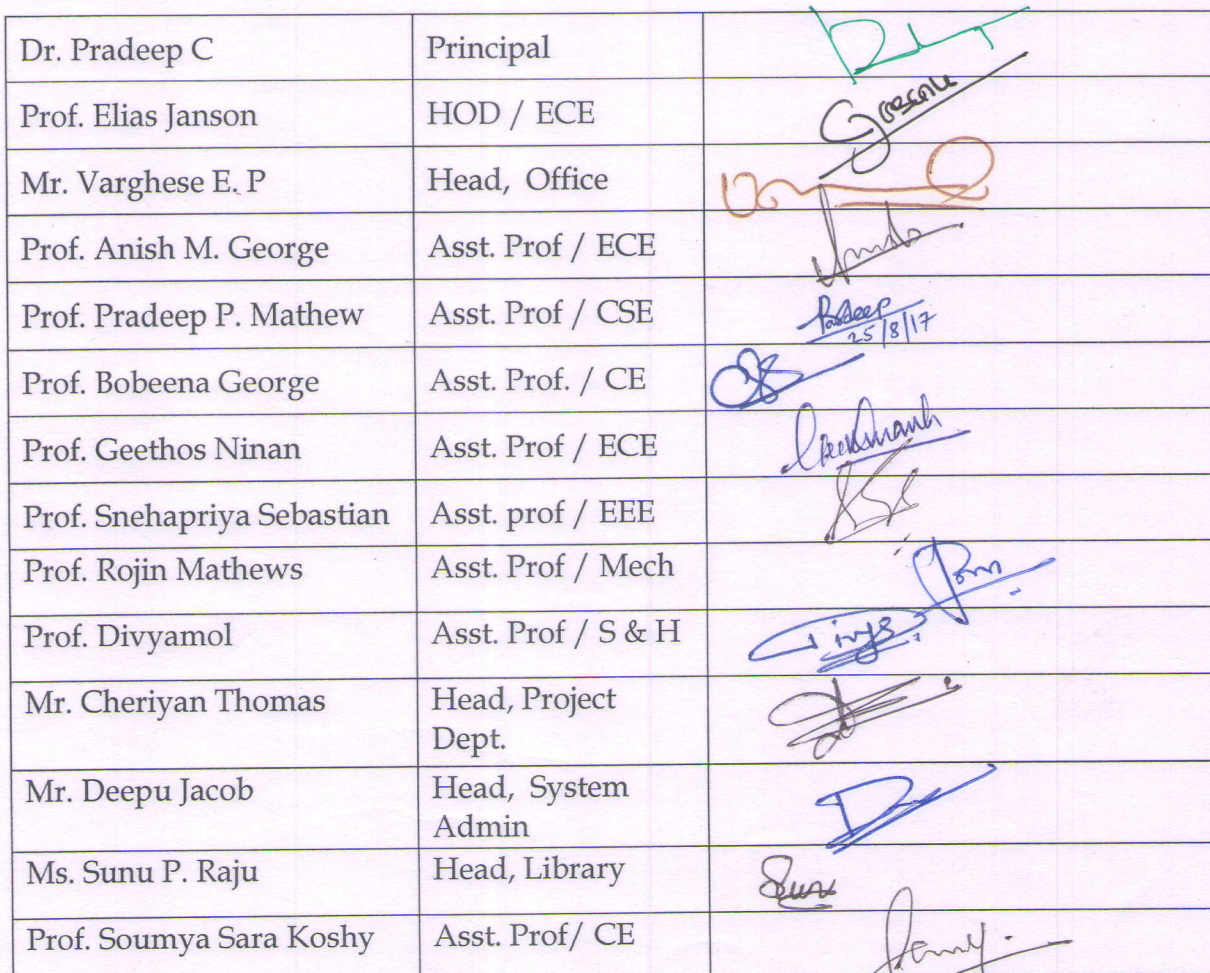 Dr. Pradeep C Principal
Prof. Elias Janson HOD / ECE
Mr. Varghese E. P Head, Office
Prof. Anish M. George Asst. Prof / ECE
Prof. Pradeep P. Mathew Asst. Prof / CSE Pradeep
25/8/17
Prof. Bobeena George Asst. Prof. / CE
Prof. Geethos Ninan Asst. Prof / ECE
Prof. Snehapriya Sebastian Asst. prof / EEE
Prof. Rojin Mathews Asst. Prof / Mech
Prof. Divyamol Asst. Prof / S & H
Mr. Cheriyan Thomas Head, Project
Dept.
Mr. Deepu Jacob Head, System
Admin
Ms. Sunu P. Raju Head, Library Sunu
Prof. Soumya Sara Koshy Asst. Prof/ CE